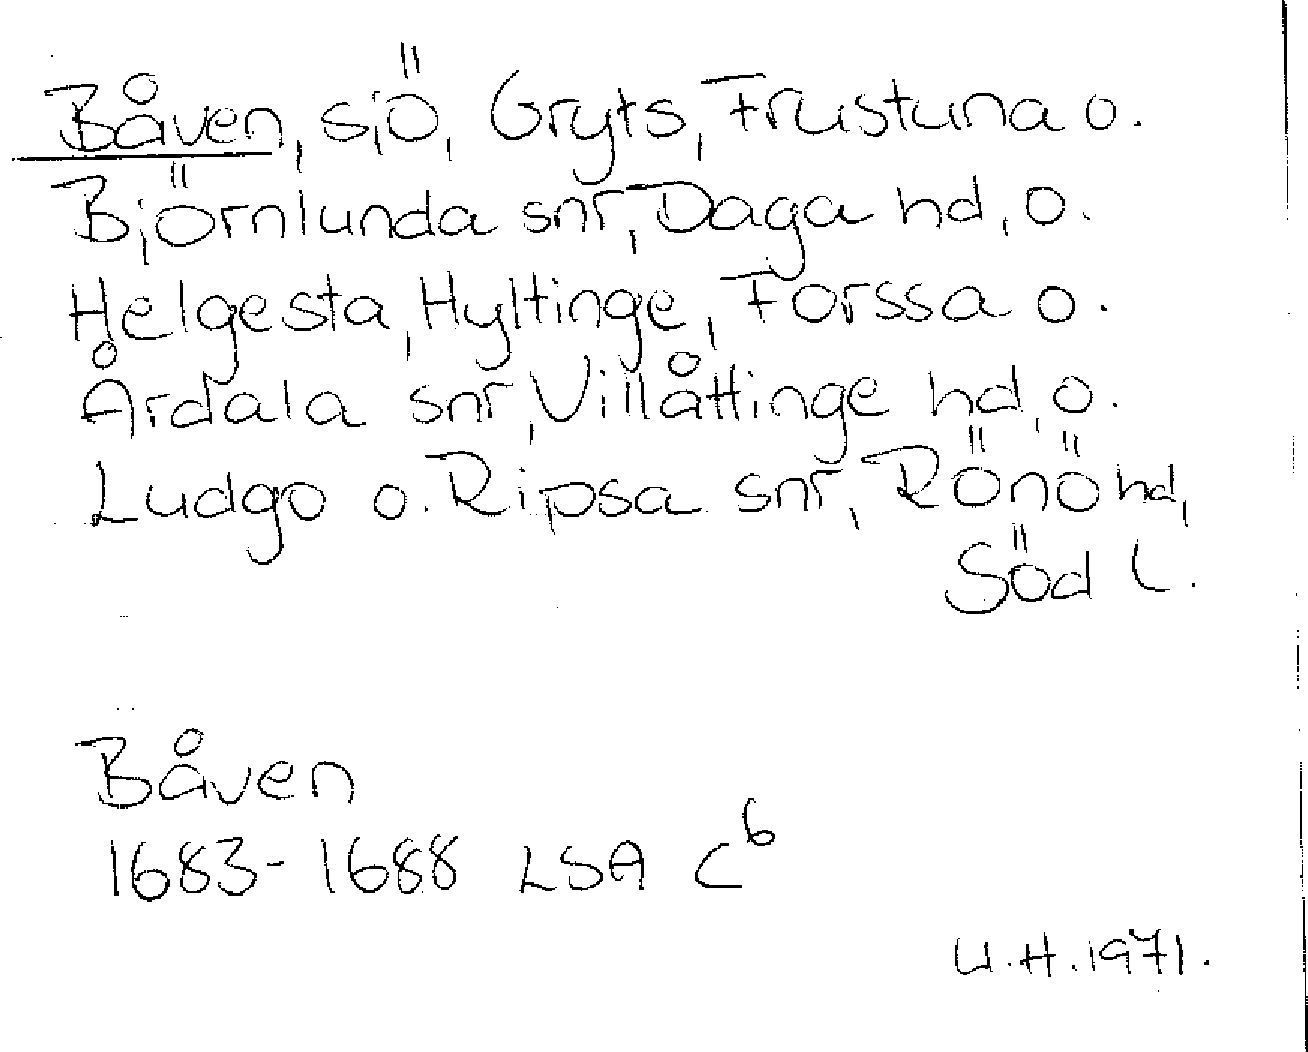 Båven, sjö, Gryts, Frustuna o.
Björnlunda snr, Daga hd, o.
Helgesta, Hyltinge, Forssa o.
Årdala snr, Villåttinge hd, o.
Ludgo o. Ripsa snr, Rönö hd,
Söd l.
Båven
1683-1688 LSA C⁶
U.H. 1971.